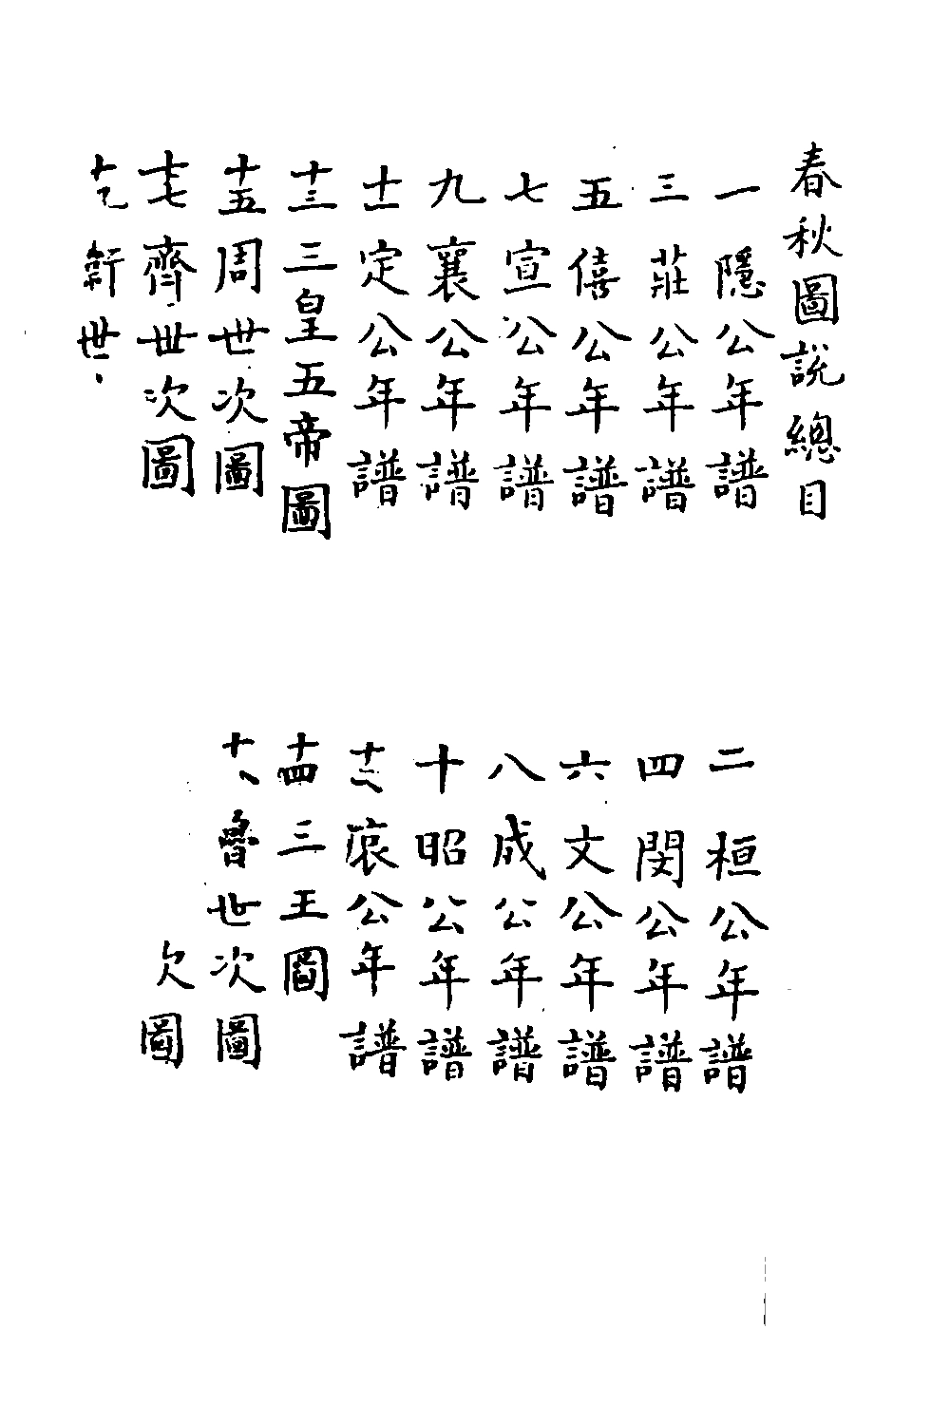 春秋圖説總目
一隱公年譜
二桓公年譜
三莊公年譜
四閔公年譜
五僖公年譜
六文公年譜
七宣公年譜
八成公年譜
九襄公年譜
十昭公年譜
十一定公年譜
十二哀公年譜
十三三皇五帝圖
十四三王圖
十五周世次圖
十魯世次圖
十七齊世次圖
圖
十世